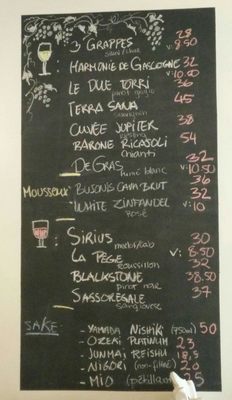 3 GRAPPES 28
sauv/char v: 8.50
HARMONIE DE GASCOGNE 32
v: 10.00
LE DUE TORRI 36
pinot grigio
TERRA SANA 45
CUVÉE JUPITER 38
BARONE RICASOLI 54
chianti
DE GRAS 32
fumé blanc v: 10.50
MOUSSEUX BRUT 36
WHITE ZINFANDEL 32
rosé v: 10
SIRIUS 30
merlot/cab v: 8.50
LA PEGE 32
roussillon
BLACKSTONE 38.50
pinot noir
SASSOREGALE 37
sangiovese
SAKE
- YAMADA NISHIKI (750ml) 50
- OZEKI PLATINUM 23
- JUNMAI REISHU 18,5
- NIGORI (non-filtré) 20
- MIO (pétillant